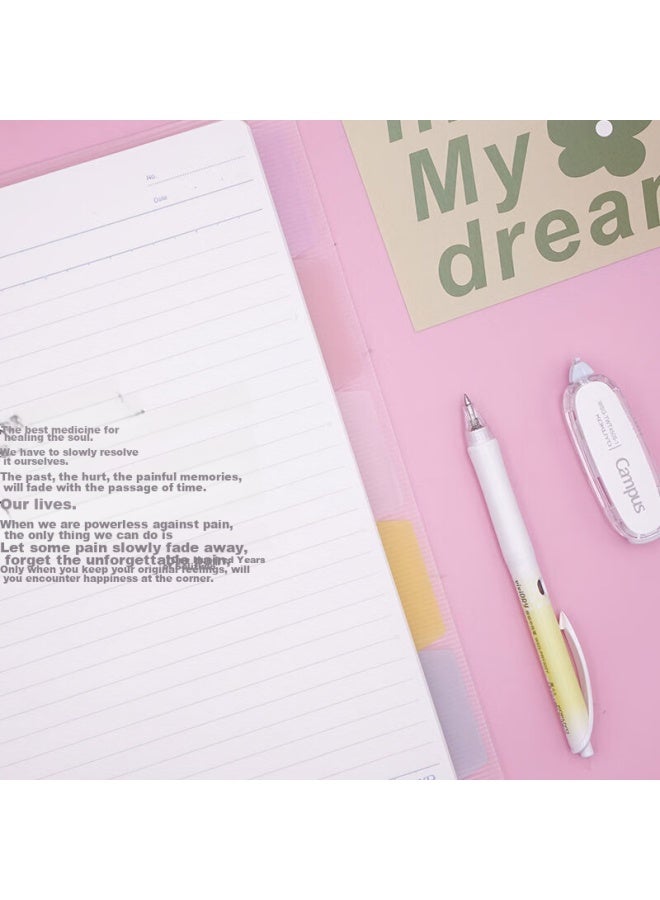 My
dream
No.
Date
Campus
The best medicine for
healing the soul.
We have to slowly resolve
it ourselves.
The past, the hurt, the painful memories,
will fade with the passage of time.
Our lives.
When we are powerless against pain,
the only thing we can do is
Let some pain slowly fade away,
forget the unforgettable pain,
Years
Only when you keep your original feelings, will
you encounter happiness at the corner.